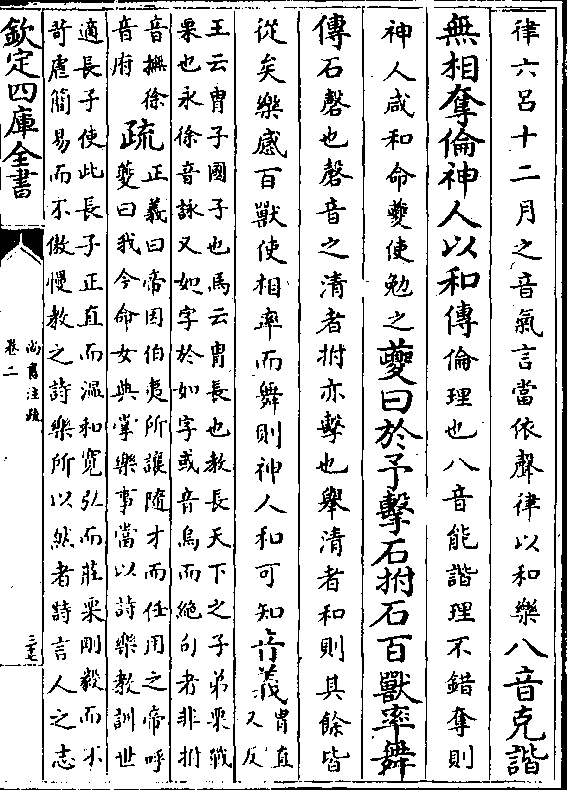 律六呂十二月之音氣言當依聲律以和樂八音克諧
無相奪倫神人以和傳倫理也八音能諧理不錯奪則
神人咸和命夔使勉之夔曰於予擊石拊石百獸率舞
傳石磬也磬音之清者拊亦擊也舉清者和則其餘皆
從矣樂感百獸使相率而舞則神人和可知音義胄直
又反
王云胄子國子也馬云胄長也教長天下之子弟栗戰
栗也永徐音詠又如字於如字或音烏而絶句者非拊
音撫徐
音府
疏正義曰帝因伯夷所讓隨才而任用之帝呼
夔曰我今命女典掌樂事當以詩樂教訓世
適長子使此長子正直而溫和寛弘而莊栗剛毅而不
苛虐簡易而不傲慢教之詩樂所以然者詩言人之志
欽定四庫全書
尚書注疏
卷二
三七